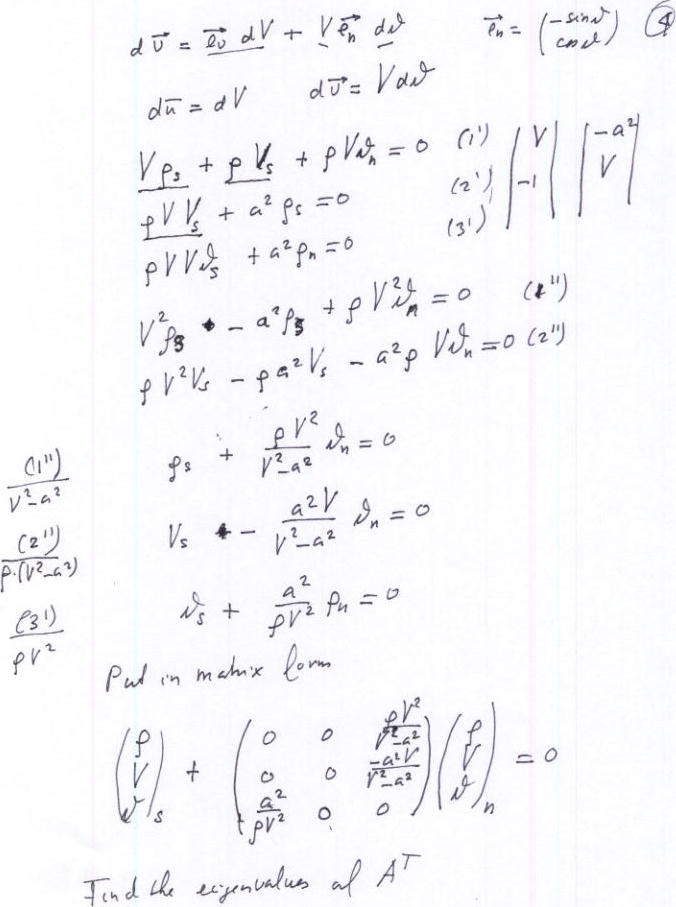 d v⃗ = e⃗_v dV + V e⃗_n dϑ    e⃗_n = (-sinϑ cosϑ)    4
du̅ = dV    dv⃗ = Vdϑ
Vρ_s + ρV_s + ρVϑ_n = 0 (1')  | V  | -a²
ρVV_s + a²ρ_s = 0 (2')  | -1  | V
ρVVϑ_s + a²ρ_n = 0 (3')
V²ρ_s - a²ρ_s + ρV²ϑ_n = 0 (1'')
ρV²V_s - ρa²V_s - a²ρ Vϑ_n = 0 (2'')
(1'')/(V²-a²)    ρ_s + ρV²/(V²-a²) ϑ_n = 0
(2'')/(ρ·(V²-a²))    V_s - a²V/(V²-a²) ϑ_n = 0
(3')/(ρV²)    ϑ_s + a²/(ρV²) ρ_n = 0
Put in matrix form
(ρ V ϑ)_s + (0 0 ρV²/(V²-a²) ; 0 0 -a²V/(V²-a²) ; a²/(ρV²) 0 0) (ρ V ϑ)_n = 0
Find the eigenvalues of A^T